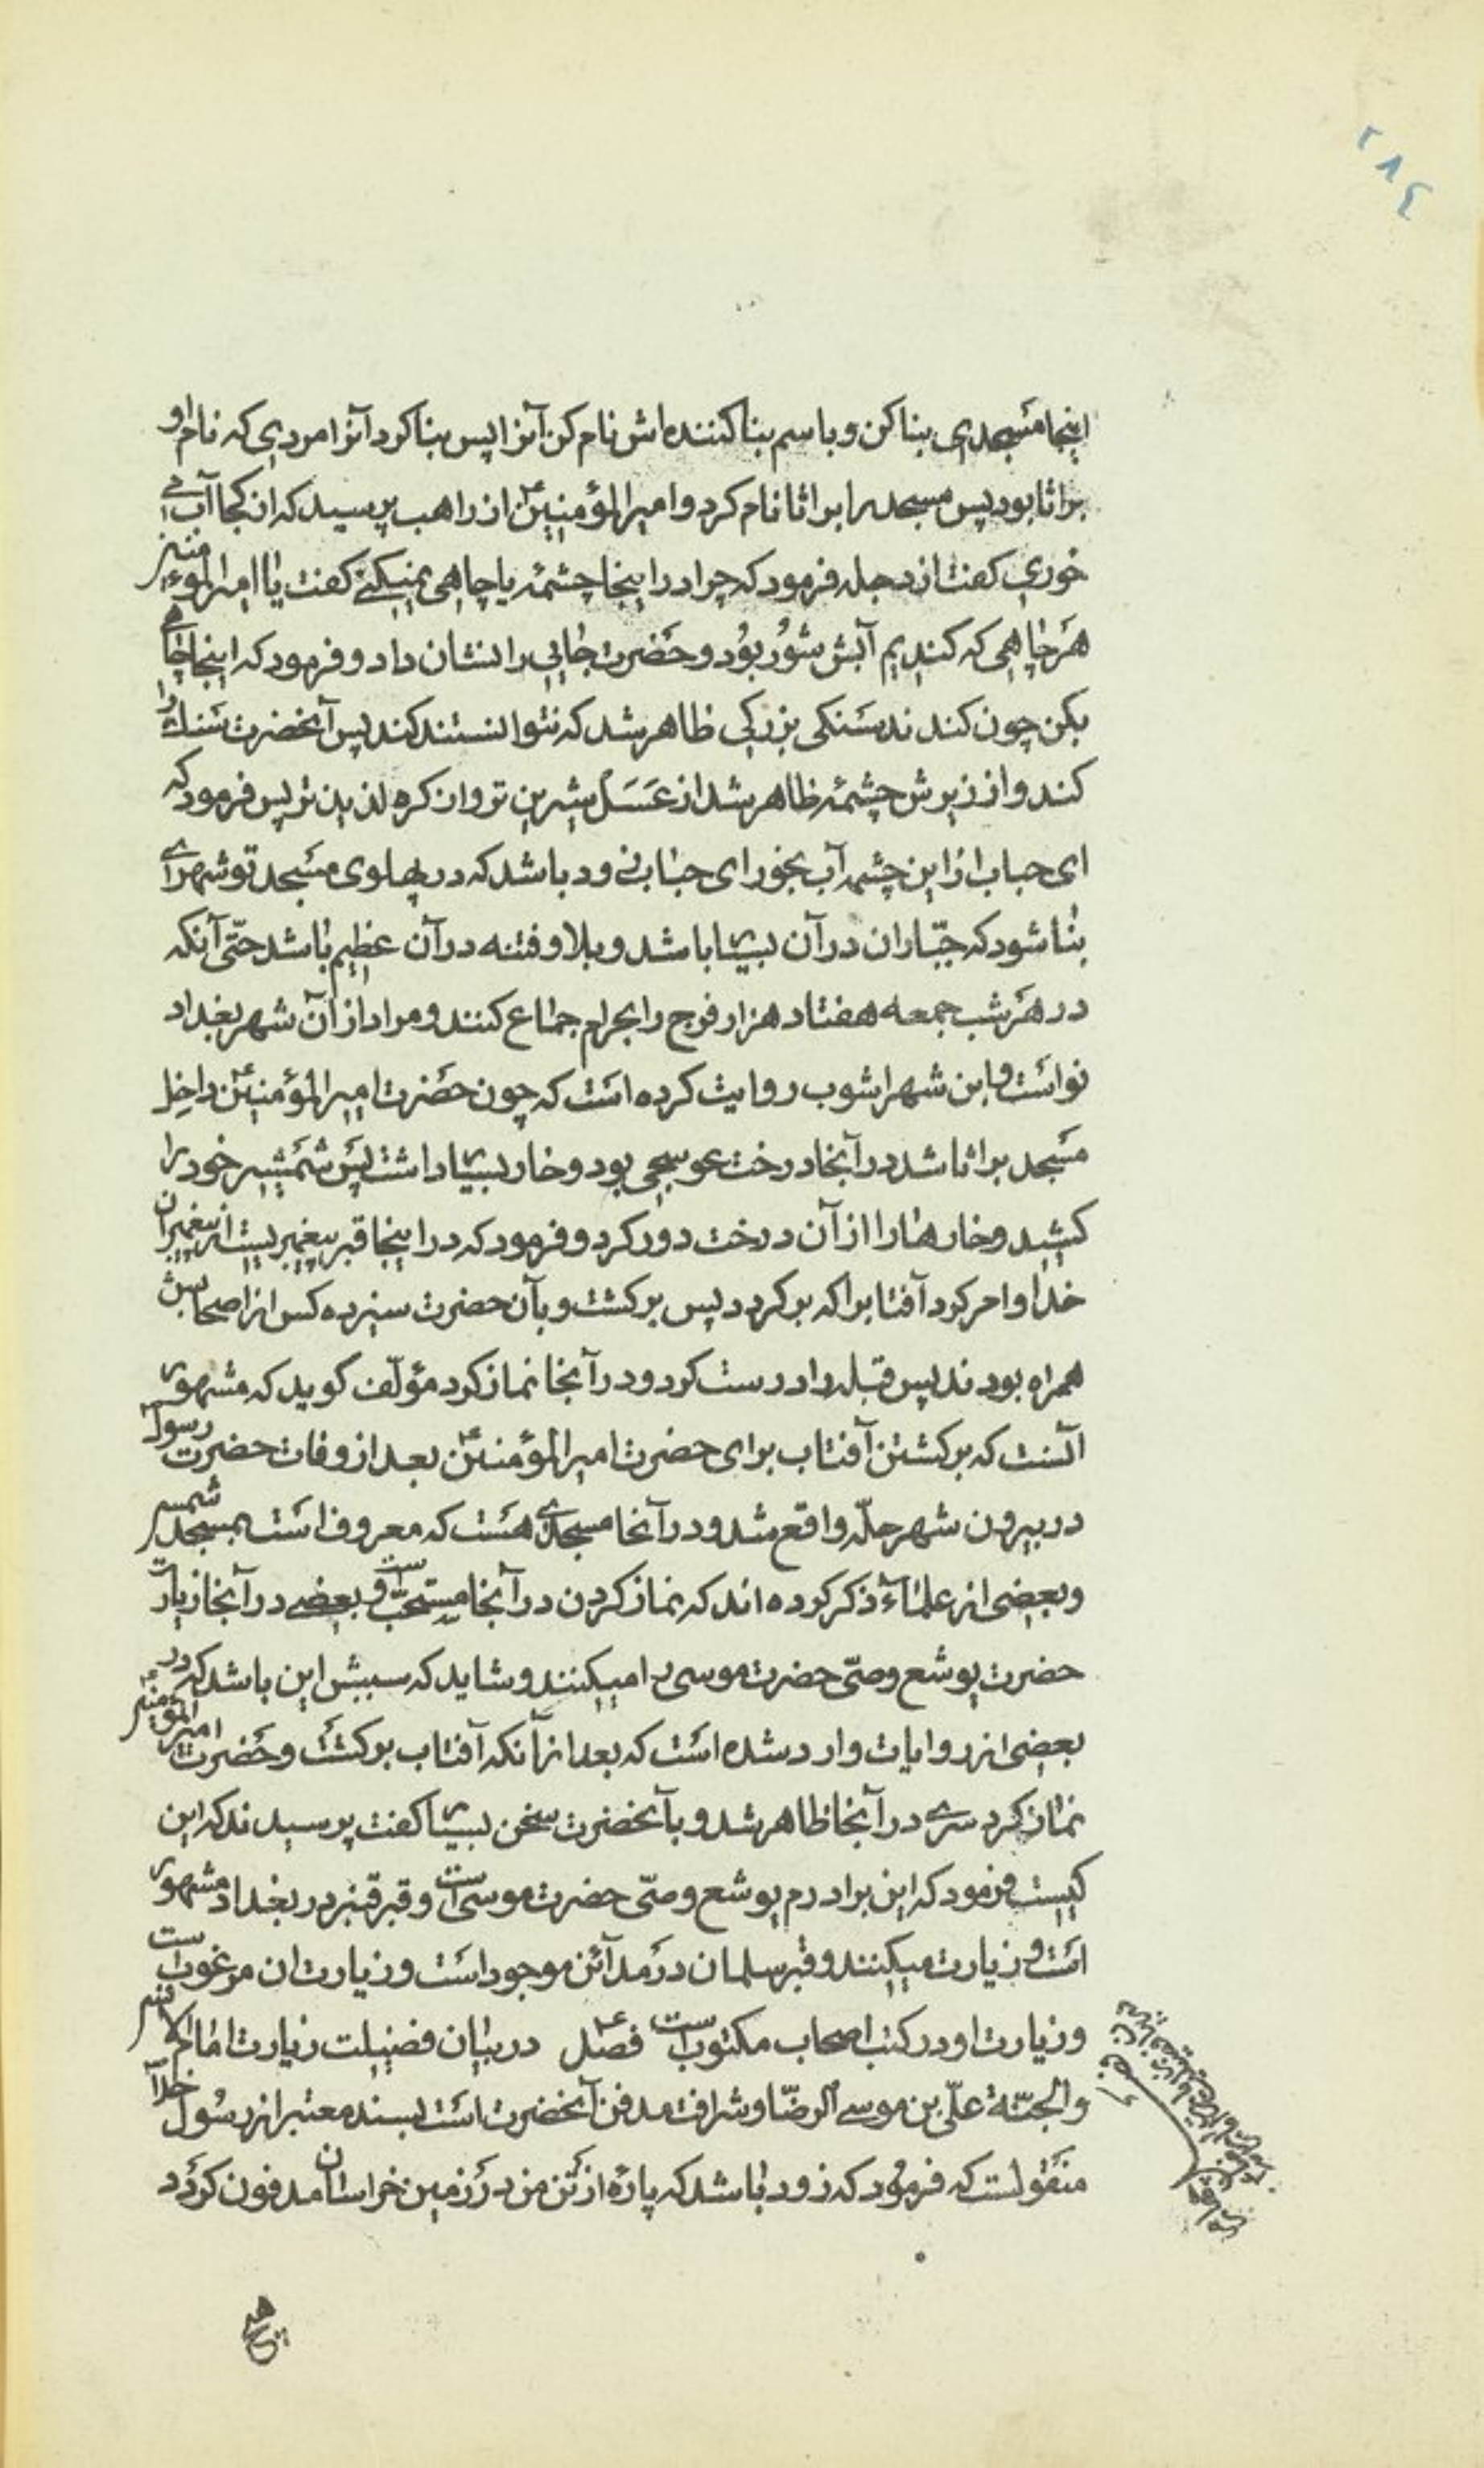 ٢٨٤
اینجا مسجدی بنا کن و باسم بنا کننده اش نام کن آنرا پس بنا کرد آنرا مردی که نام او
براثا بود پس مسجد را براثا نام کرد و امیر المؤمنین ع از راهب پرسید که از کجا آب می
خوری کفت از دجله فرمود که چرا در اینجا چشمهٔ یا چاهی نمیکنی کفت یا امیر المؤمنین
هر چاهی که کندیم آبش شور بود و حضرت جایی را نشان داد و فرمود که اینجا چاهی
بکن چون کندند سنکی بزرکی ظاهر شد که نتوانستند کند پس آنحضرت سنك را
کند و از زیرش چشمهٔ ظاهر شد از عسل شیرین تر و از کره لذیذ تر پس فرمود که
ای حباب از این چشمه آب بخور ای حباب زود باشد که در پهلوی مسجد تو شهرای
بنا شود که جبّاران در آن بسیار باشد و بلا و فتنه در آن عظیم باشد حتّی آنکه
در هر شب جمعه هفتاد هزار فرج را بحرام جماع کنند و مراد از آن شهر بغداد
نو است و ابن شهراشوب روایت کرده است که چون حضرت امیر المؤمنین ع داخل
مسجد براثا شد در آنجا درخت عوسجی بود و خار بسیار داشت پس شمشیر خود را
کشید و خارها را از آن درخت دور کرد و فرمود که در اینجا قبر پیغمبریست از پیغمبران
خدا و امر کرد آفتابرا که برکردد پس برکشت و بآن حضرت سیزده کس از اصحابش
همراه بودند پس قبله را درست کرد و در آنجا نماز کرد مؤلّف کوید که مشهور
آنست که برکشتن آفتاب برای حضرت امیر المؤمنین ع بعد از وفات حضرت رسول
در بیرون شهر حلّه واقع شد و در آنجا مسجدی هست که معروف است بمسجد شمس
و بعضی از علمآء ذکر کرده اند که نماز کردن در آنجا مستحبّ است و بعضی در آنجا زیارت
حضرت یوشع وصّی حضرت موسی را میکنند و شاید که سببش این باشد که در
بعضی از روایات وارد شده است که بعد از آنکه آفتاب برکشت و حضرت امیر المؤمنین ع
نماز کرد سری در آنجا ظاهر شد و بآنحضرت سخن بسیار کفت پرسیدند که این
کیست فرمود که این برادرم یوشع وصّی حضرت موسی است و قبر قنبر در بغداد مشهور
است و زیارت میکنند و قبر سلمان در مدآئن موجود است و زیارت ان مرغوب است
و زیارت او در کتب اصحاب مکتوب است فصل در بیان فضیلت زیارت امام الانس
والجنّة علّی بن موسی الرضّا و شرافت مدفن آنحضرت است بسند معتبر از رسول خدآ
منقولست که فرمود که زود باشد که پارهٔ از تن من در زمین خراسان مدفون کردد
هیچ